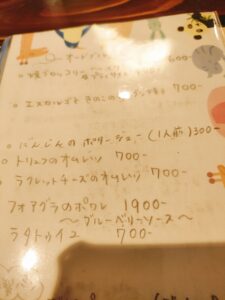 オードブル 600-
○ エスカルゴときのこの 700-
○ にんじんのポタージュー(1人前)300-
○ トリュフのオムレツ 700-
○ ラクレットチーズのオムレツ 700-
フォアグラのポワレ 1900-
～ブルーベリーソース～
ラタトゥイユ 700-